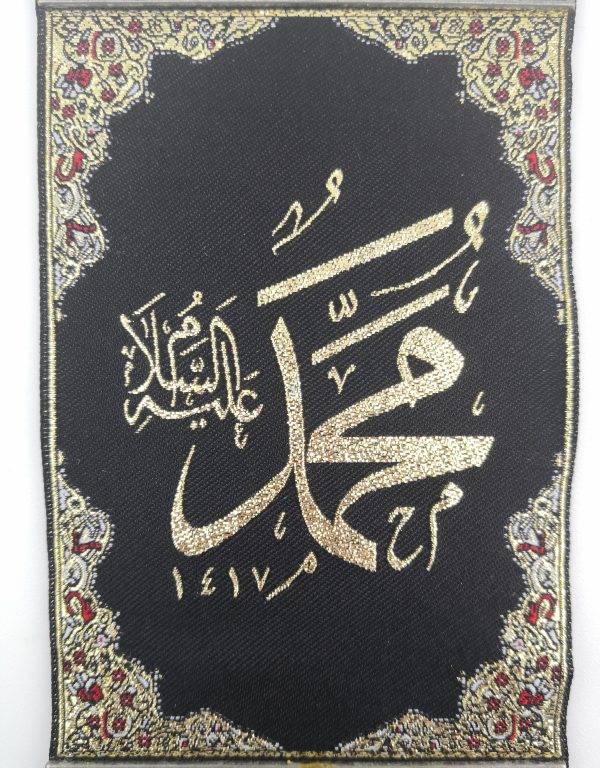 مُحَمَّدٌ
عَلَيهِ السَّلَامُ
١٤١٧